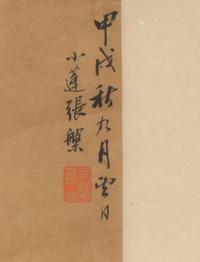 甲戌秋九月望日
小蓬張槃